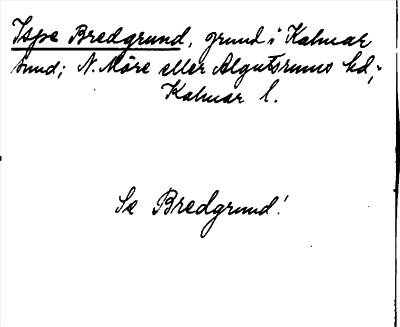 Ispe Bredgrund, grund i Kalmar
sund; N. Möre eller Algutsrums hd,
Kalmar l.
Se Bredgrund!